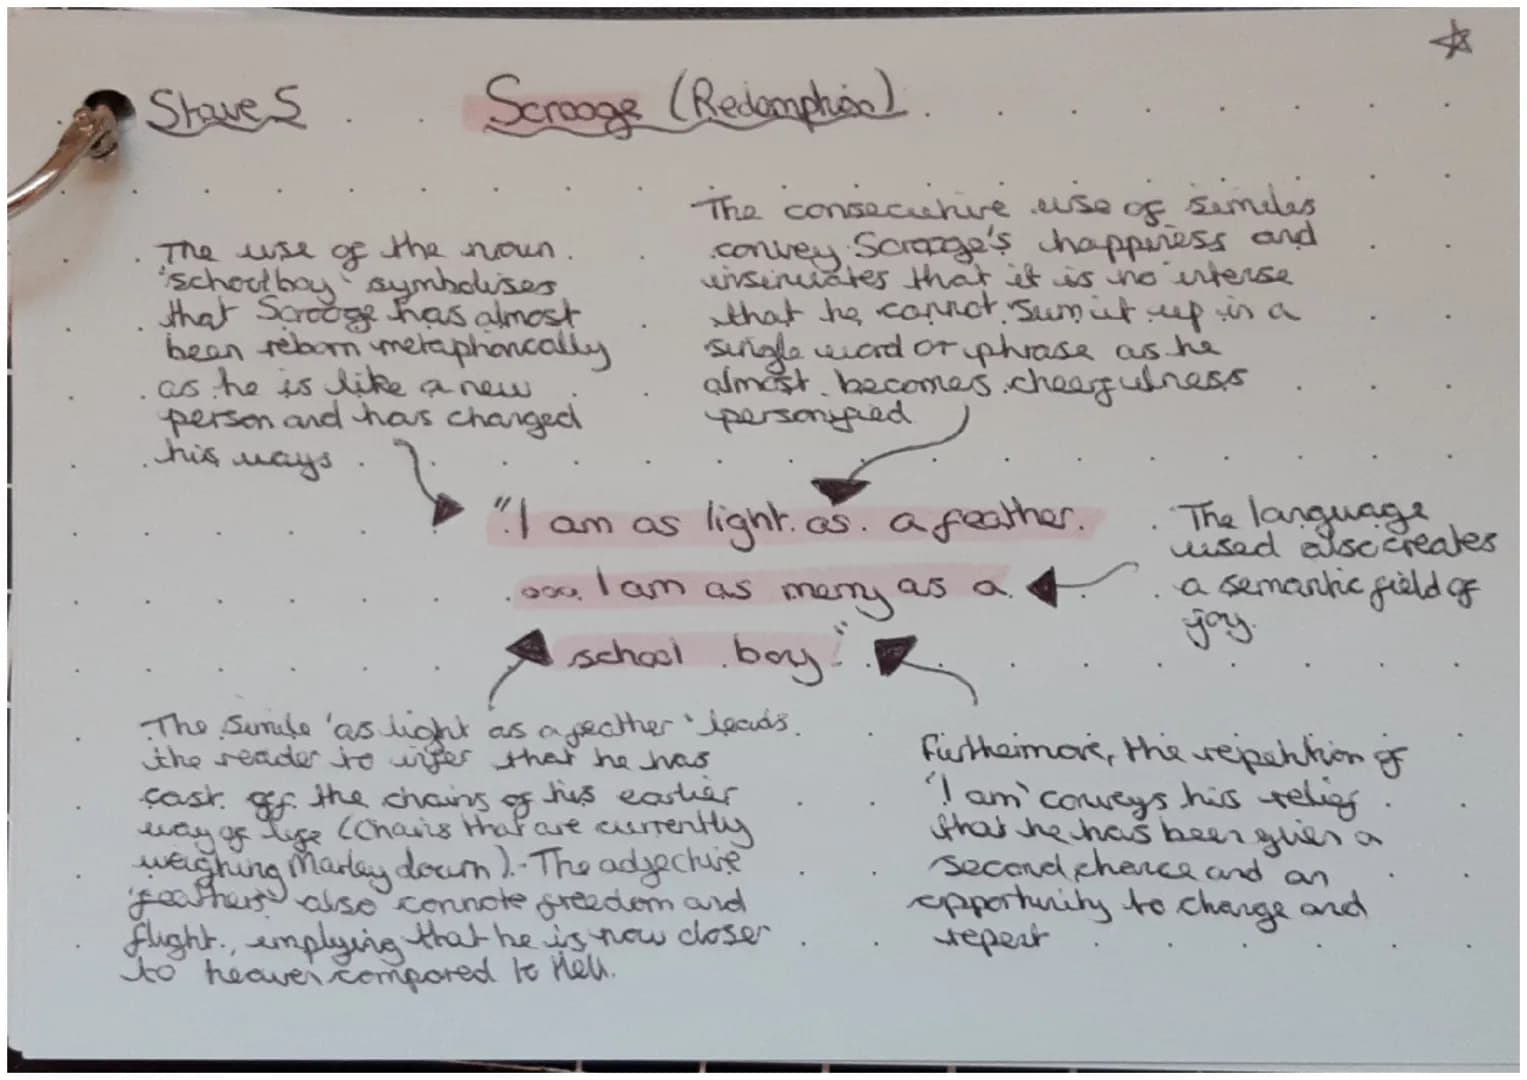 Stave 5
Scrooge (Redemption)
The use of the noun
'schoolboy' symbolises
that Scrooge has almost
been reborn metaphorically
as he is like a new
person and has changed
his ways
The consecutive use of similes
convey Scrooge's happiness and
insinuates that it is no intense
that he cannot sum it up in a
single word or phrase as he
almost becomes cheerfulness
personified
"I am as light as a feather
... I am as merry as a
school boy"
The language
used also creates
a semantic field of
joy.
The simile 'as light as a feather' leads
the reader to infer that he has
cast off the chains of his earlier
way of life (Chains that are currently
weighing Marley down). The adjective
'feathers' also connote freedom and
flight, implying that he is now closer
to heaven compared to Hell.
Furthermore, the repetition of
'I am' conveys his relief
that he has been given a
second chance and an
opportunity to change and
repent